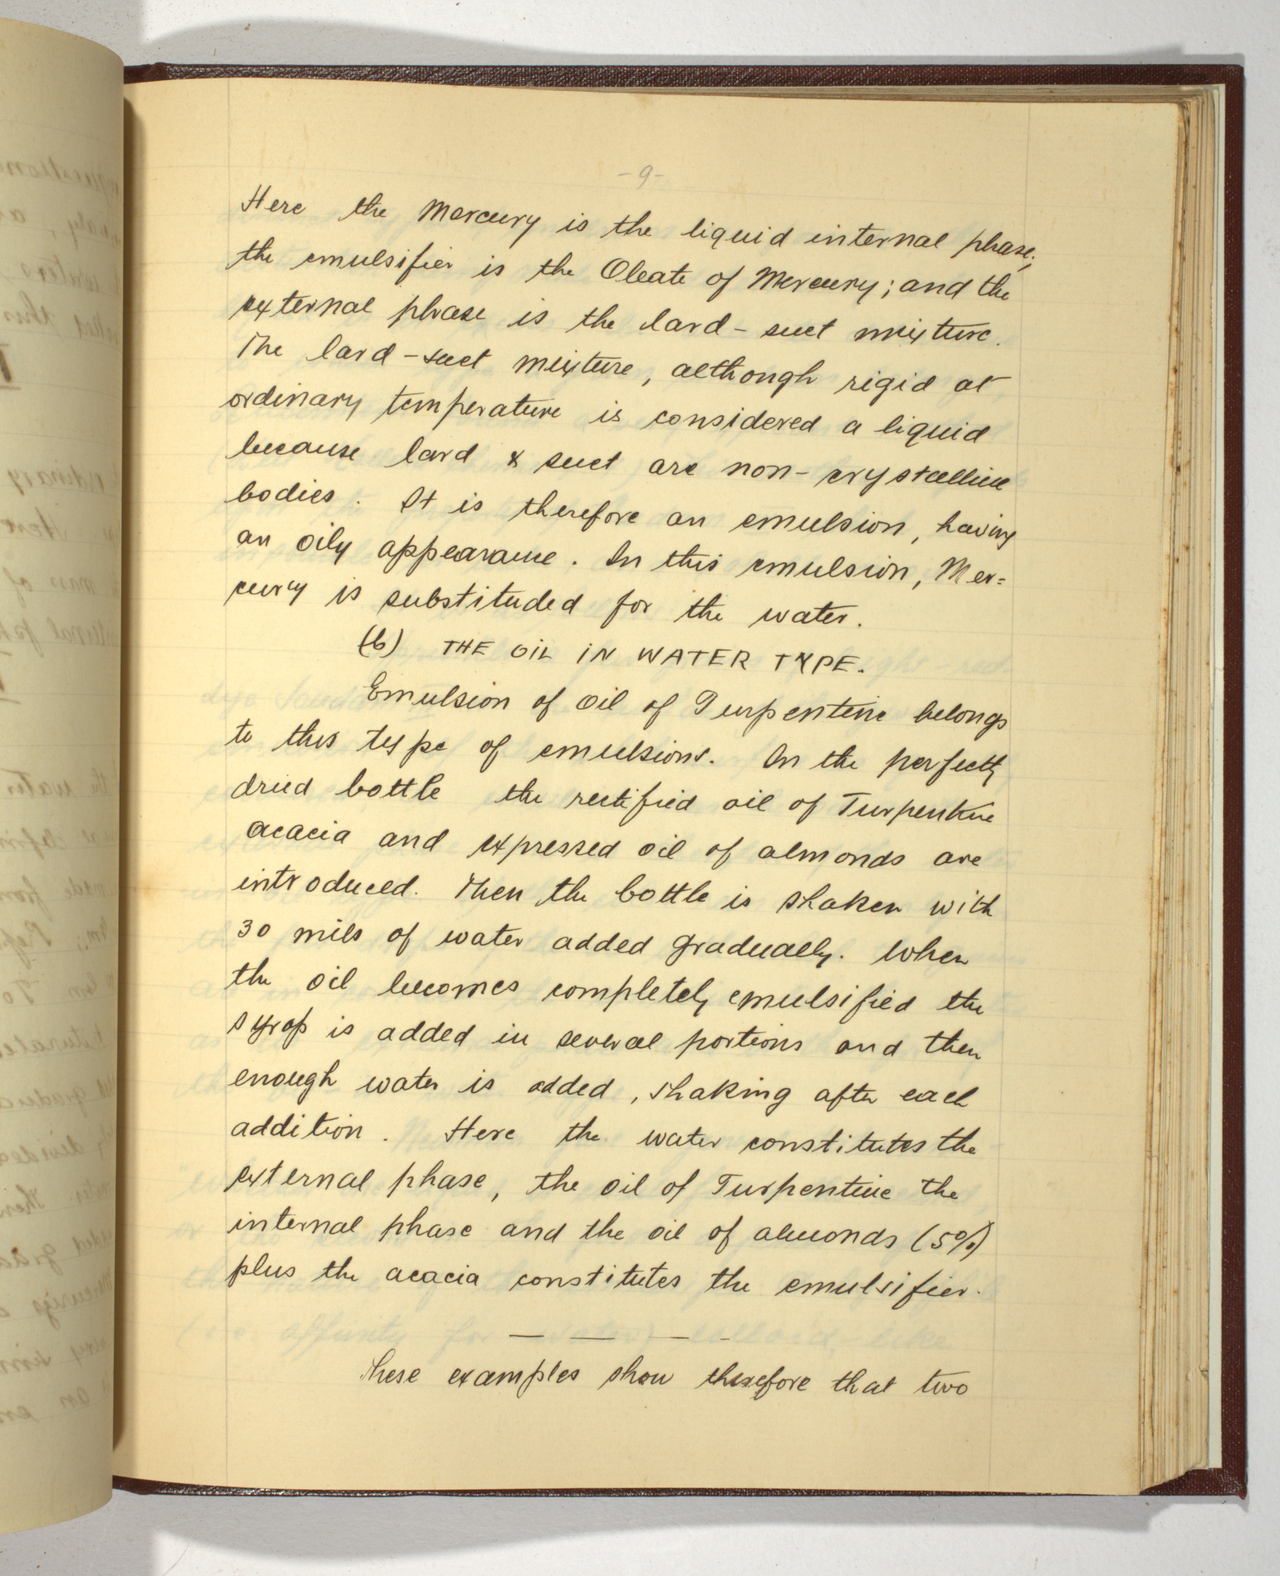 -9-
Here the Mercury is the liquid internal phase;
the emulsifier is the Oleate of Mercury; and the
external phase is the lard-suet mixture.
The lard-suet mixture, although rigid at
ordinary temperature is considered a liquid
because lard & suet are non-crystalline
bodies. It is therefore an emulsion, having
an oily appearance. In this emulsion, Mer=
cury is substituded for the water.
(b) THE OIL IN WATER TYPE.
Emulsion of Oil of Turpentine belongs
to this type of emulsions. In the perfectly
dried bottle the rectified oil of Turpentine
acacia and expressed oil of almonds are
introduced. Then the bottle is shaken with
30 mils of water added gradually. When
the oil becomes completely emulsified the
syrop is added in several portions and then
enough water is added, shaking after each
addition. Here the water constitutes the
external phase, the oil of Turpentine the
internal phase and the oil of almonds (5%)
plus the acacia constitutes the emulsifier.
These examples show therefore that two